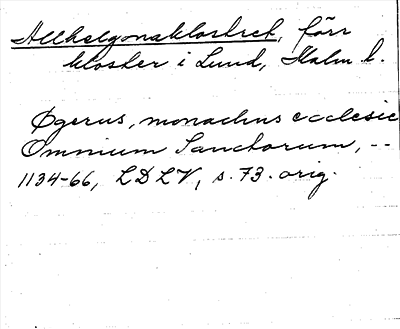 Allhelgonaklostret, förr
kloster i Lund, Malm. l.
Øgerus, monachus ecclesie
Omnium Sanctorum, --
1134-66, LDLV, s. 73. orig.